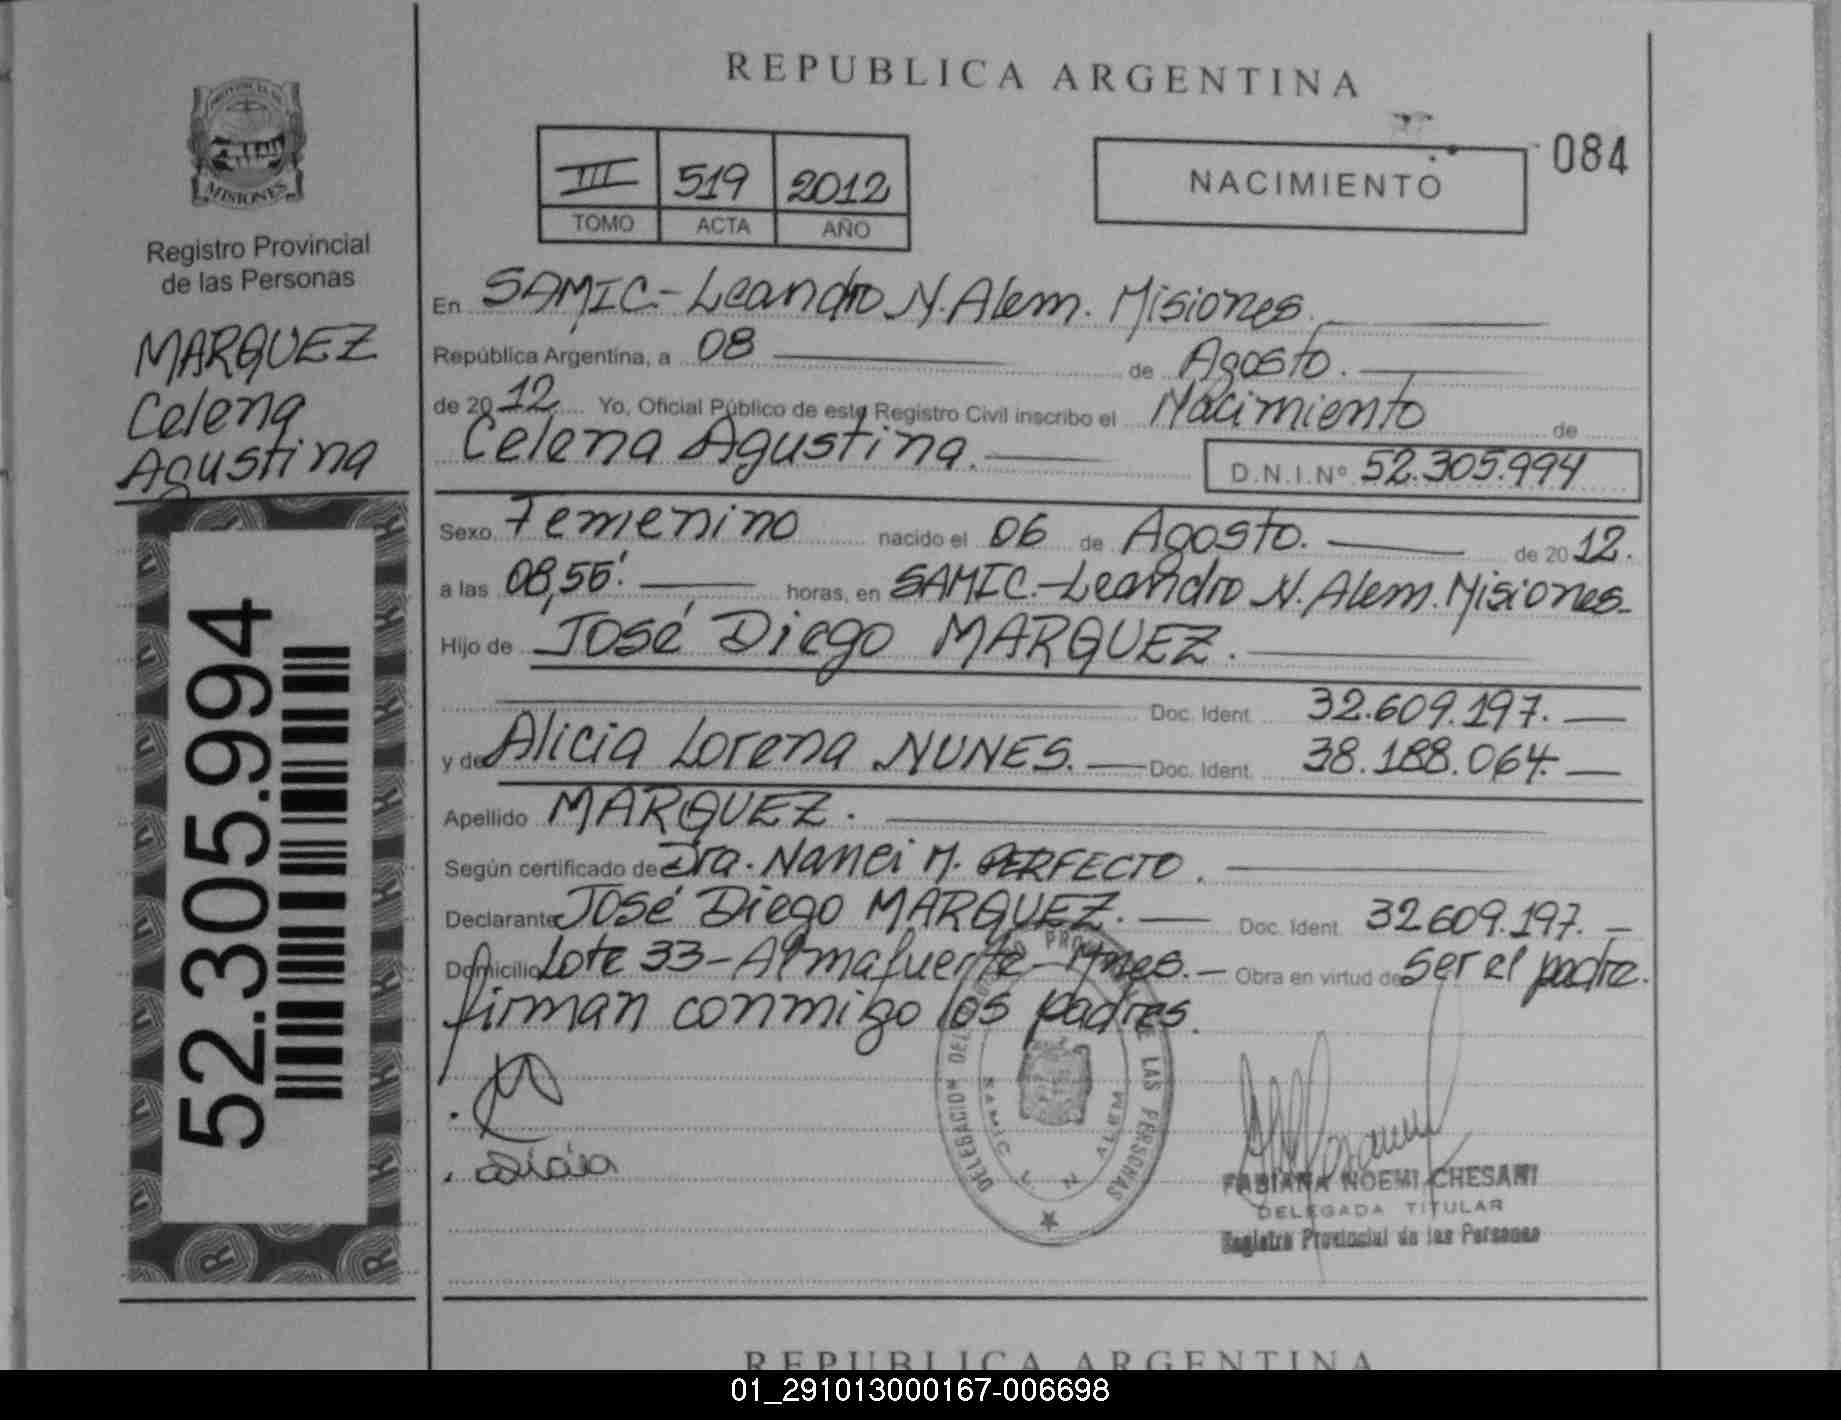 REPUBLICA ARGENTINA
PROVINCIA DE
MISIONES
Registro Provincial
de las Personas
MARQUEZ
Celena
Agustina
52.305.994
III 519 2012
TOMO ACTA AÑO
NACIMIENTO
084
En SAMIC.-Leandro N. Alem. Misiones.
República Argentina, a 08 de Agosto.
de 2012 Yo, Oficial Público de este Registro Civil inscribo el Nacimiento de
Celena Agustina. D.N.I.Nº 52.305.994
Sexo Femenino nacido el 06 de Agosto. de 2012.
a las 08,55' horas, en SAMIC.-Leandro N. Alem. Misiones.
Hijo de José Diego MARQUEZ.
Doc. Ident. 32.609.197.
y de Alicia Lorena NUNES. Doc. Ident. 38.188.064.
Apellido MARQUEZ.
Según certificado de Dra. Nanci M. PERFECTO.
Declarante José Diego MARQUEZ. Doc. Ident. 32609.197.
Domicilio Lote 33-Almafuerte-Mnes. Obra en virtud de ser el padre.
firman conmigo los padres.
DELEGACION DEL REGISTRO PROVINCIAL DE LAS PERSONAS
SAMIC L. N. ALEM
FABIANA NOEMI CHESANI
DELEGADA TITULAR
Registro Provincial de las Personas
REPUBLICA ARGENTINA
01_291013000167-006698